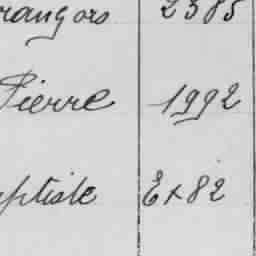 rangois 2385
Pierre 1992
aptiste Ex82